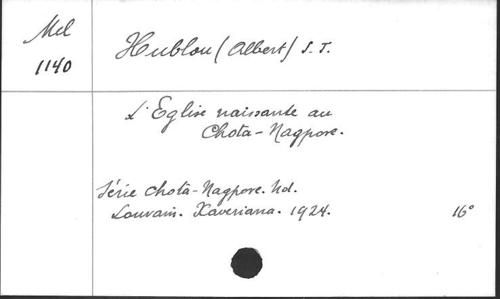 Mel
1140
Hublou (Albert) S.J.
L'Eglise naissante au
Chota-Nagpore.
Série Chota-Nagpore. Nd.
Louvain. Xaveriana. 1924. 16°